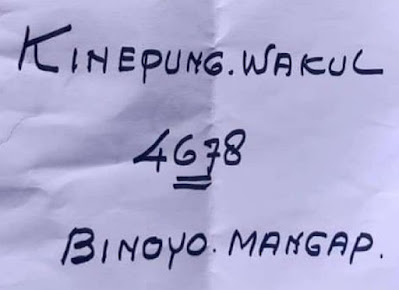 KINEPUNG.WAKUL
4678
BINOYO.MANGAP.